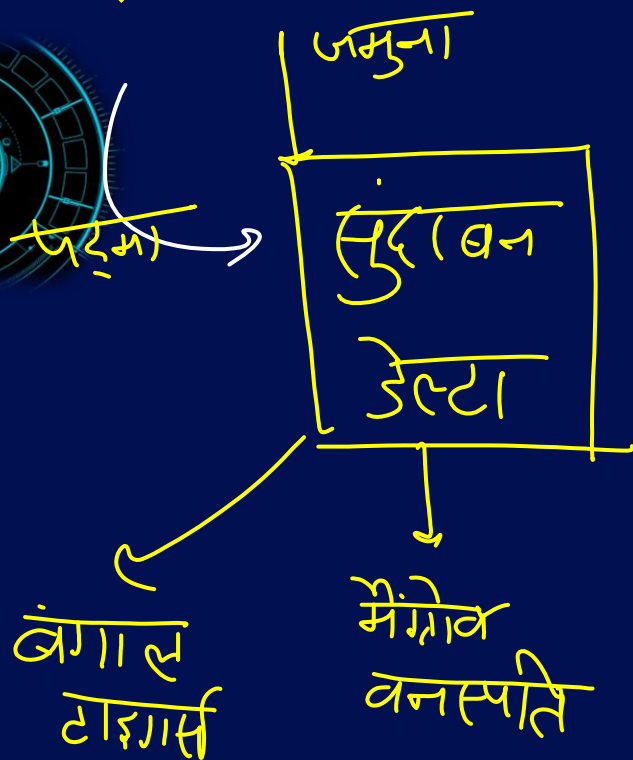 जमुना
पद्मा
सुंदरबन
डेल्टा
बंगाल
टाइगर्स
मैंग्रोव
वनस्पति